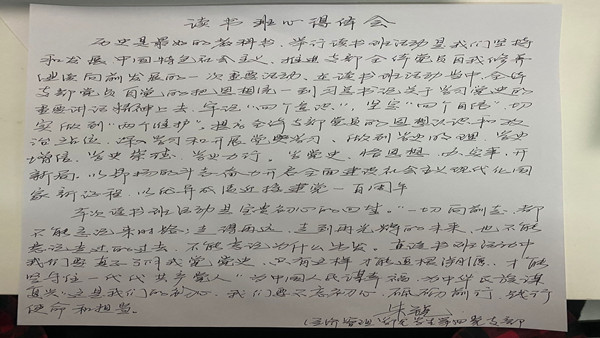 读书班心得体会
历史是最好的教科书,举行读书班活动是我们坚持
和发展中国特色社会主义,推进支部全体党员自我修养
建设向前发展的一次重要活动。在读书班活动当中,全体
支部党员自觉的把思想统一到习总书记关于学习党史的
重要讲话精神上去,牢记“四个意识”,坚定“四个自信”,切
实做到“两个维护”。提高全体支部党员的思想认识和政
治站位,深入学习和开展党史学习、做到学史明理、学史
增信、学史崇德、学史力行。学党史、悟思想、办实事、开
新局,以昂扬的斗志奋力开启全面建设社会主义现代化国
家新征程,以的成迎接建党一百周年
本次读书班活动是宝贵初心的回望。“一切向前走,都
不能忘记来时路;走得再远、走到再光辉的未来,也不能
忘记走过的过去,不能忘记为什么出发。在读书班活动中
我们要真学党史,只有这样才能追根溯源,才能
坚守住一代代共产党人“为中国人民谋幸福,为中华民族谋
复兴”这是我们的初心,我们要不忘初心,砥砺前行,践行
使命和担当。